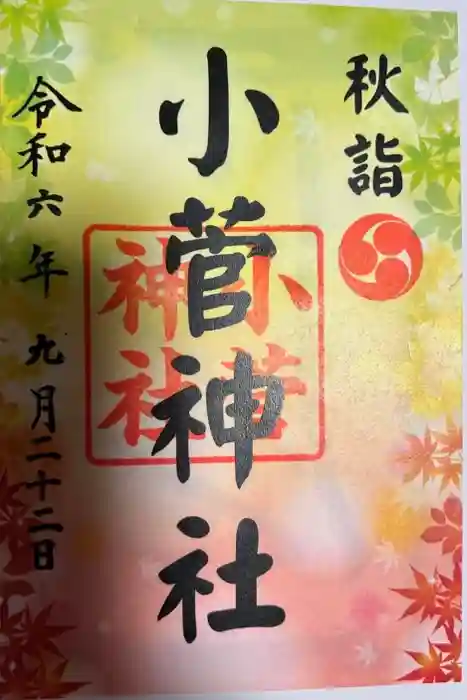 秋詣
小菅神社
小菅
神社
令和六年 九月二十二日